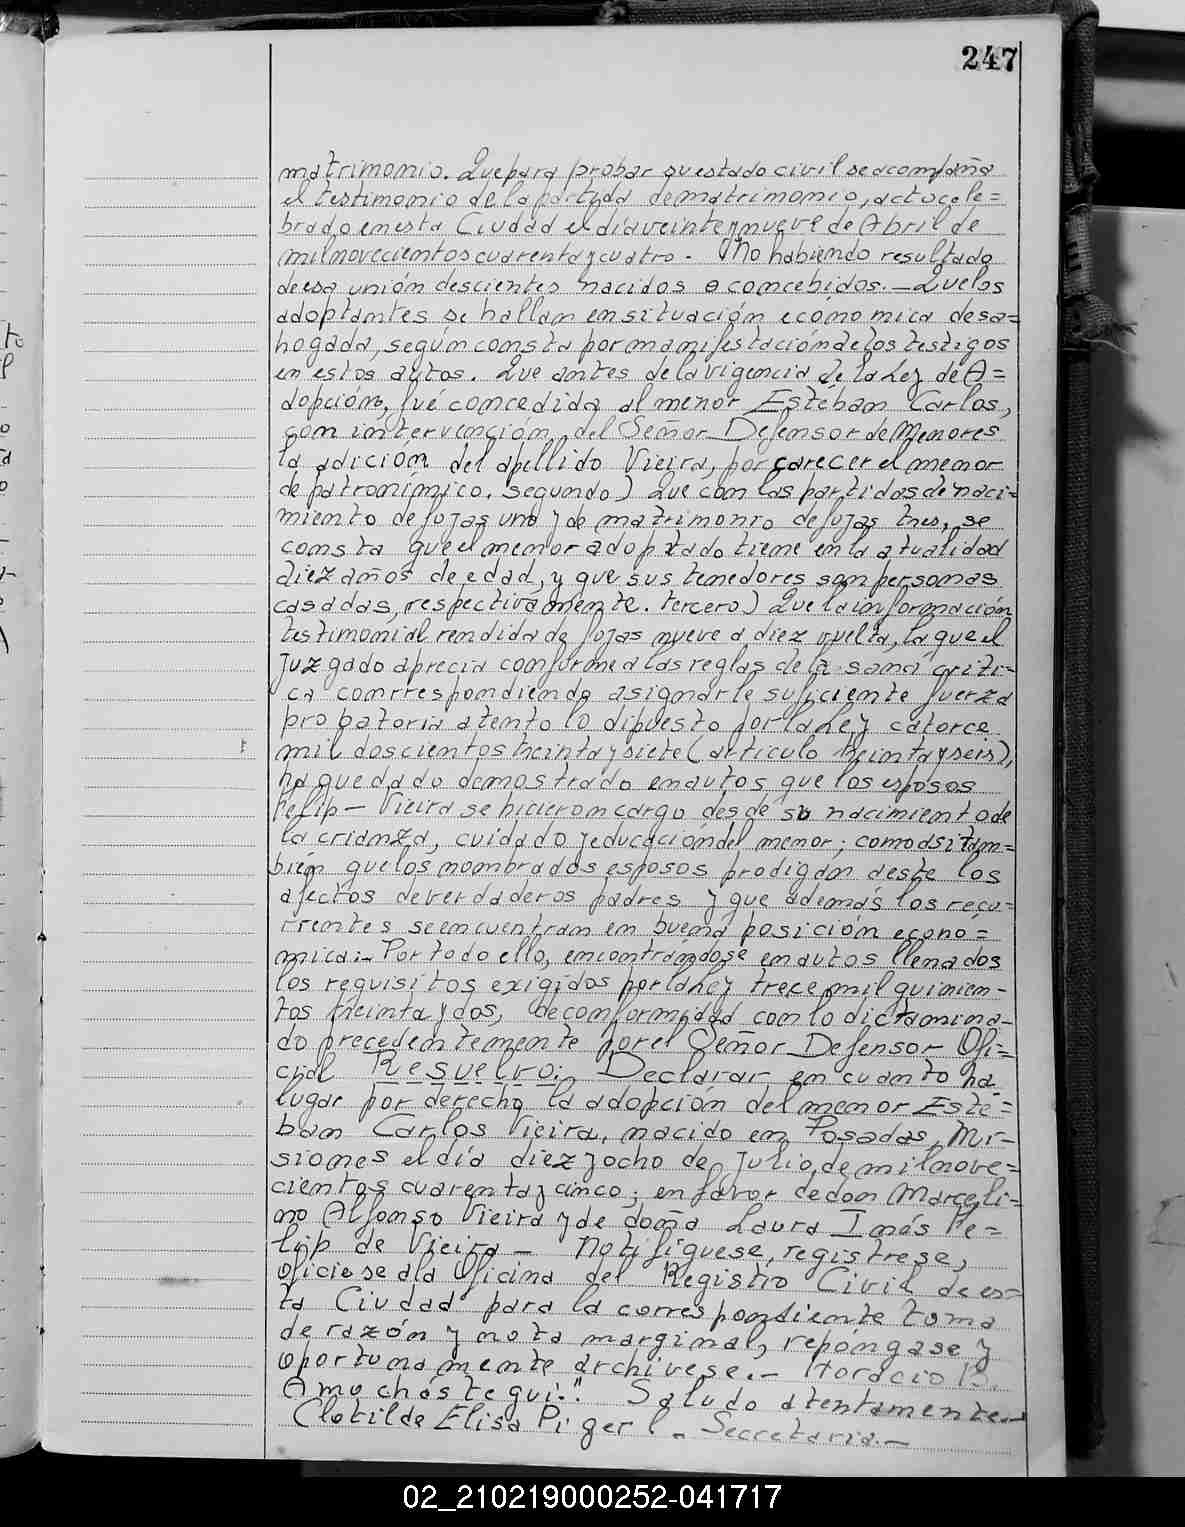 247
matrimonio. Que para probar su estado civil se acompaña
el testimonio de la partida de matrimonio, acto cele=
brado en esta Ciudad el dia veinte y nueve de Abril de
mil novecientos cuarenta y cuatro. - No habiendo resultado
de esa unión descientes nacidos o concebidos. - Que los
adoptantes se hallan en situación economica desa=
hogada, según consta por manifestación de los testigos
en estos autos. Que antes de la vigencia de la Ley de A=
dopción, fué concedida al menor Estéban Carlos,
con intervención del Señor Defensor de Menores
la adición del apellido Vieira, por carecer el menor
de patronimico. segundo) Que con las partidas de naci=
miento de fojas uno y de matrimonio de fojas tres, se
consta que el menor adoptado tiene en la atualidad
diez años de edad, y que sus tenedores son personas
casadas, respectivamente. tercero) Que la información
testimonial rendida de fojas nueve a diez vuelta, la que el
Juzgado aprecia conforme a las reglas de la sana criti=
ca comrrespondiendo asignarle suficiente fuerza
probatoria atento lo dipuesto por la Ley catorce
mil doscientos treinta y siete (articulo treinta y seis),
ha quedado demostrado en autos que los esposos
Felip - Vieira se hicieron cargo desde su nacimiento de
la crianza, cuidado y educación del menor; como asi tam=
bién que los nombrados esposos prodigan a este los
afectos de verdaderos padres y que además los recu=
rrentes se encuentran en buena posición econo=
mica. - Por todo ello, encontrándose en autos llenados
los requisitos exigidos por la Ley trece mil quinien-
tos treinta y dos, de conformidad con lo dictamina-
do precedentemente por el Señor Defensor Ofi=
cial Resuelvo: Declarar en cuanto ha
lugar por derecho la adopción del menor Esté=
ban Carlos Vieira, nacido en Posadas, Mi-
siones el día diez y ocho de Julio de mil nove=
cientos cuarenta y cinco; en favor de don Marceli=
no Alfonso Vieira y de doña Laura Inés Fe=
lip de Vieira - Notifiquese, registrese,
oficiese a la Oficina del Registro Civil de es=
ta Ciudad para la correspondiente toma
de razón y nota marginal, repóngase y
oportunamente archivese. - Horacio B.
Amuchástegui." Saludo atentamente. -
Clotilde Elisa Pigerl - Secretaria. -
02_210219000252-041717